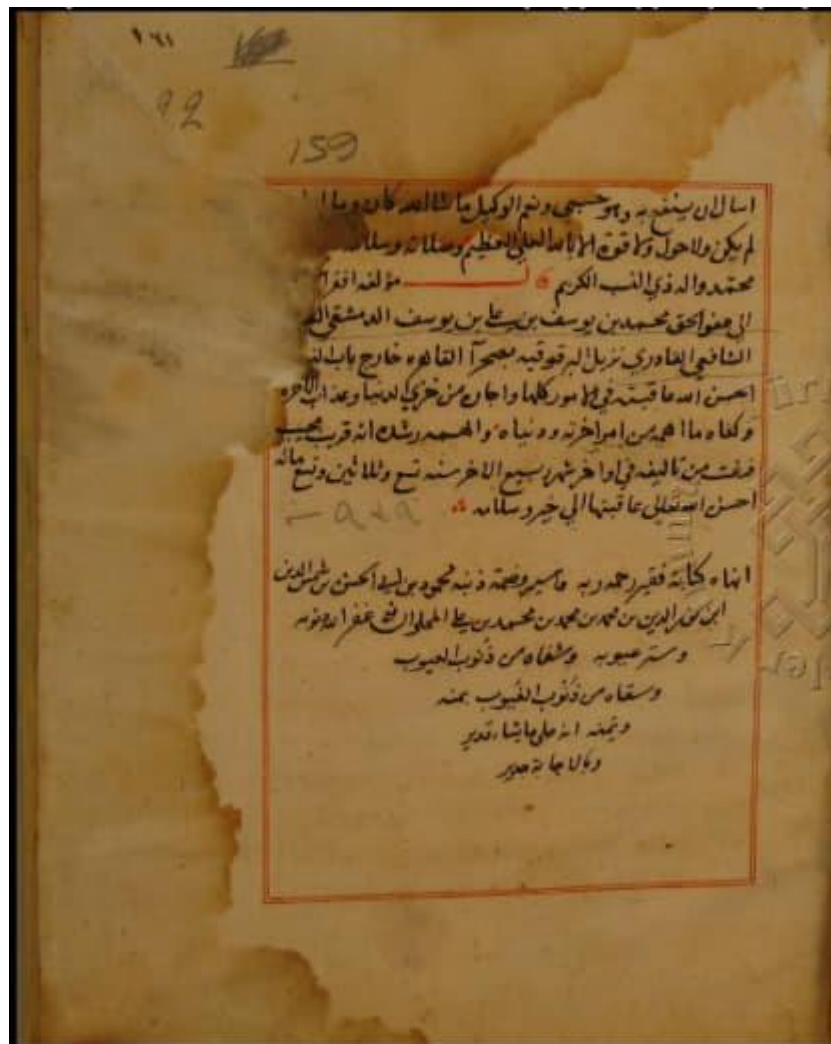 ١٦١
92
159
اسال ان ينفع به وهو حسبي ونعم الوكيل ما شا الله كان وما
لم يكن ولا حول ولا قوة الا بالله العلي العظيم وصلاته وسلامه
محمد واله ذي النسب الكريم مؤلفه افقر
الى عفو الحق محمد بن يوسف بن علي بن يوسف الدمشقي
الشافعي القادري نزيل البرقوقيه بصحرآ القاهره خارج باب
احسن الله عاقبته في الامور كلها واجاره من خزي الدنيا وعذاب الاخره
وكفاه ما اهمه من امر اخرته ودنياه والهمه رشده انه قريب مجيب
فرغت من تاليفه في اواخر شهر ربيع الاخر سنه تسع وثلاثين وتسع مائه
احسن الله تعالى عاقبتها الي خير وسلامه
انهاه كتابة فقير رحمة ربه واسير وصمة ذنبه محمود بن الحسن بن شمس الدين
ابن الدين بن محمد بن محمد بن محمد بن علي المحلي غفر ذنوبه
وستر عيوبه وشفاه من ذنوب العيوب
وسقاه من ذنوب الغيوب بمنه
ويمنه انه على ما يشاء قدير
وبالاجابة جدير